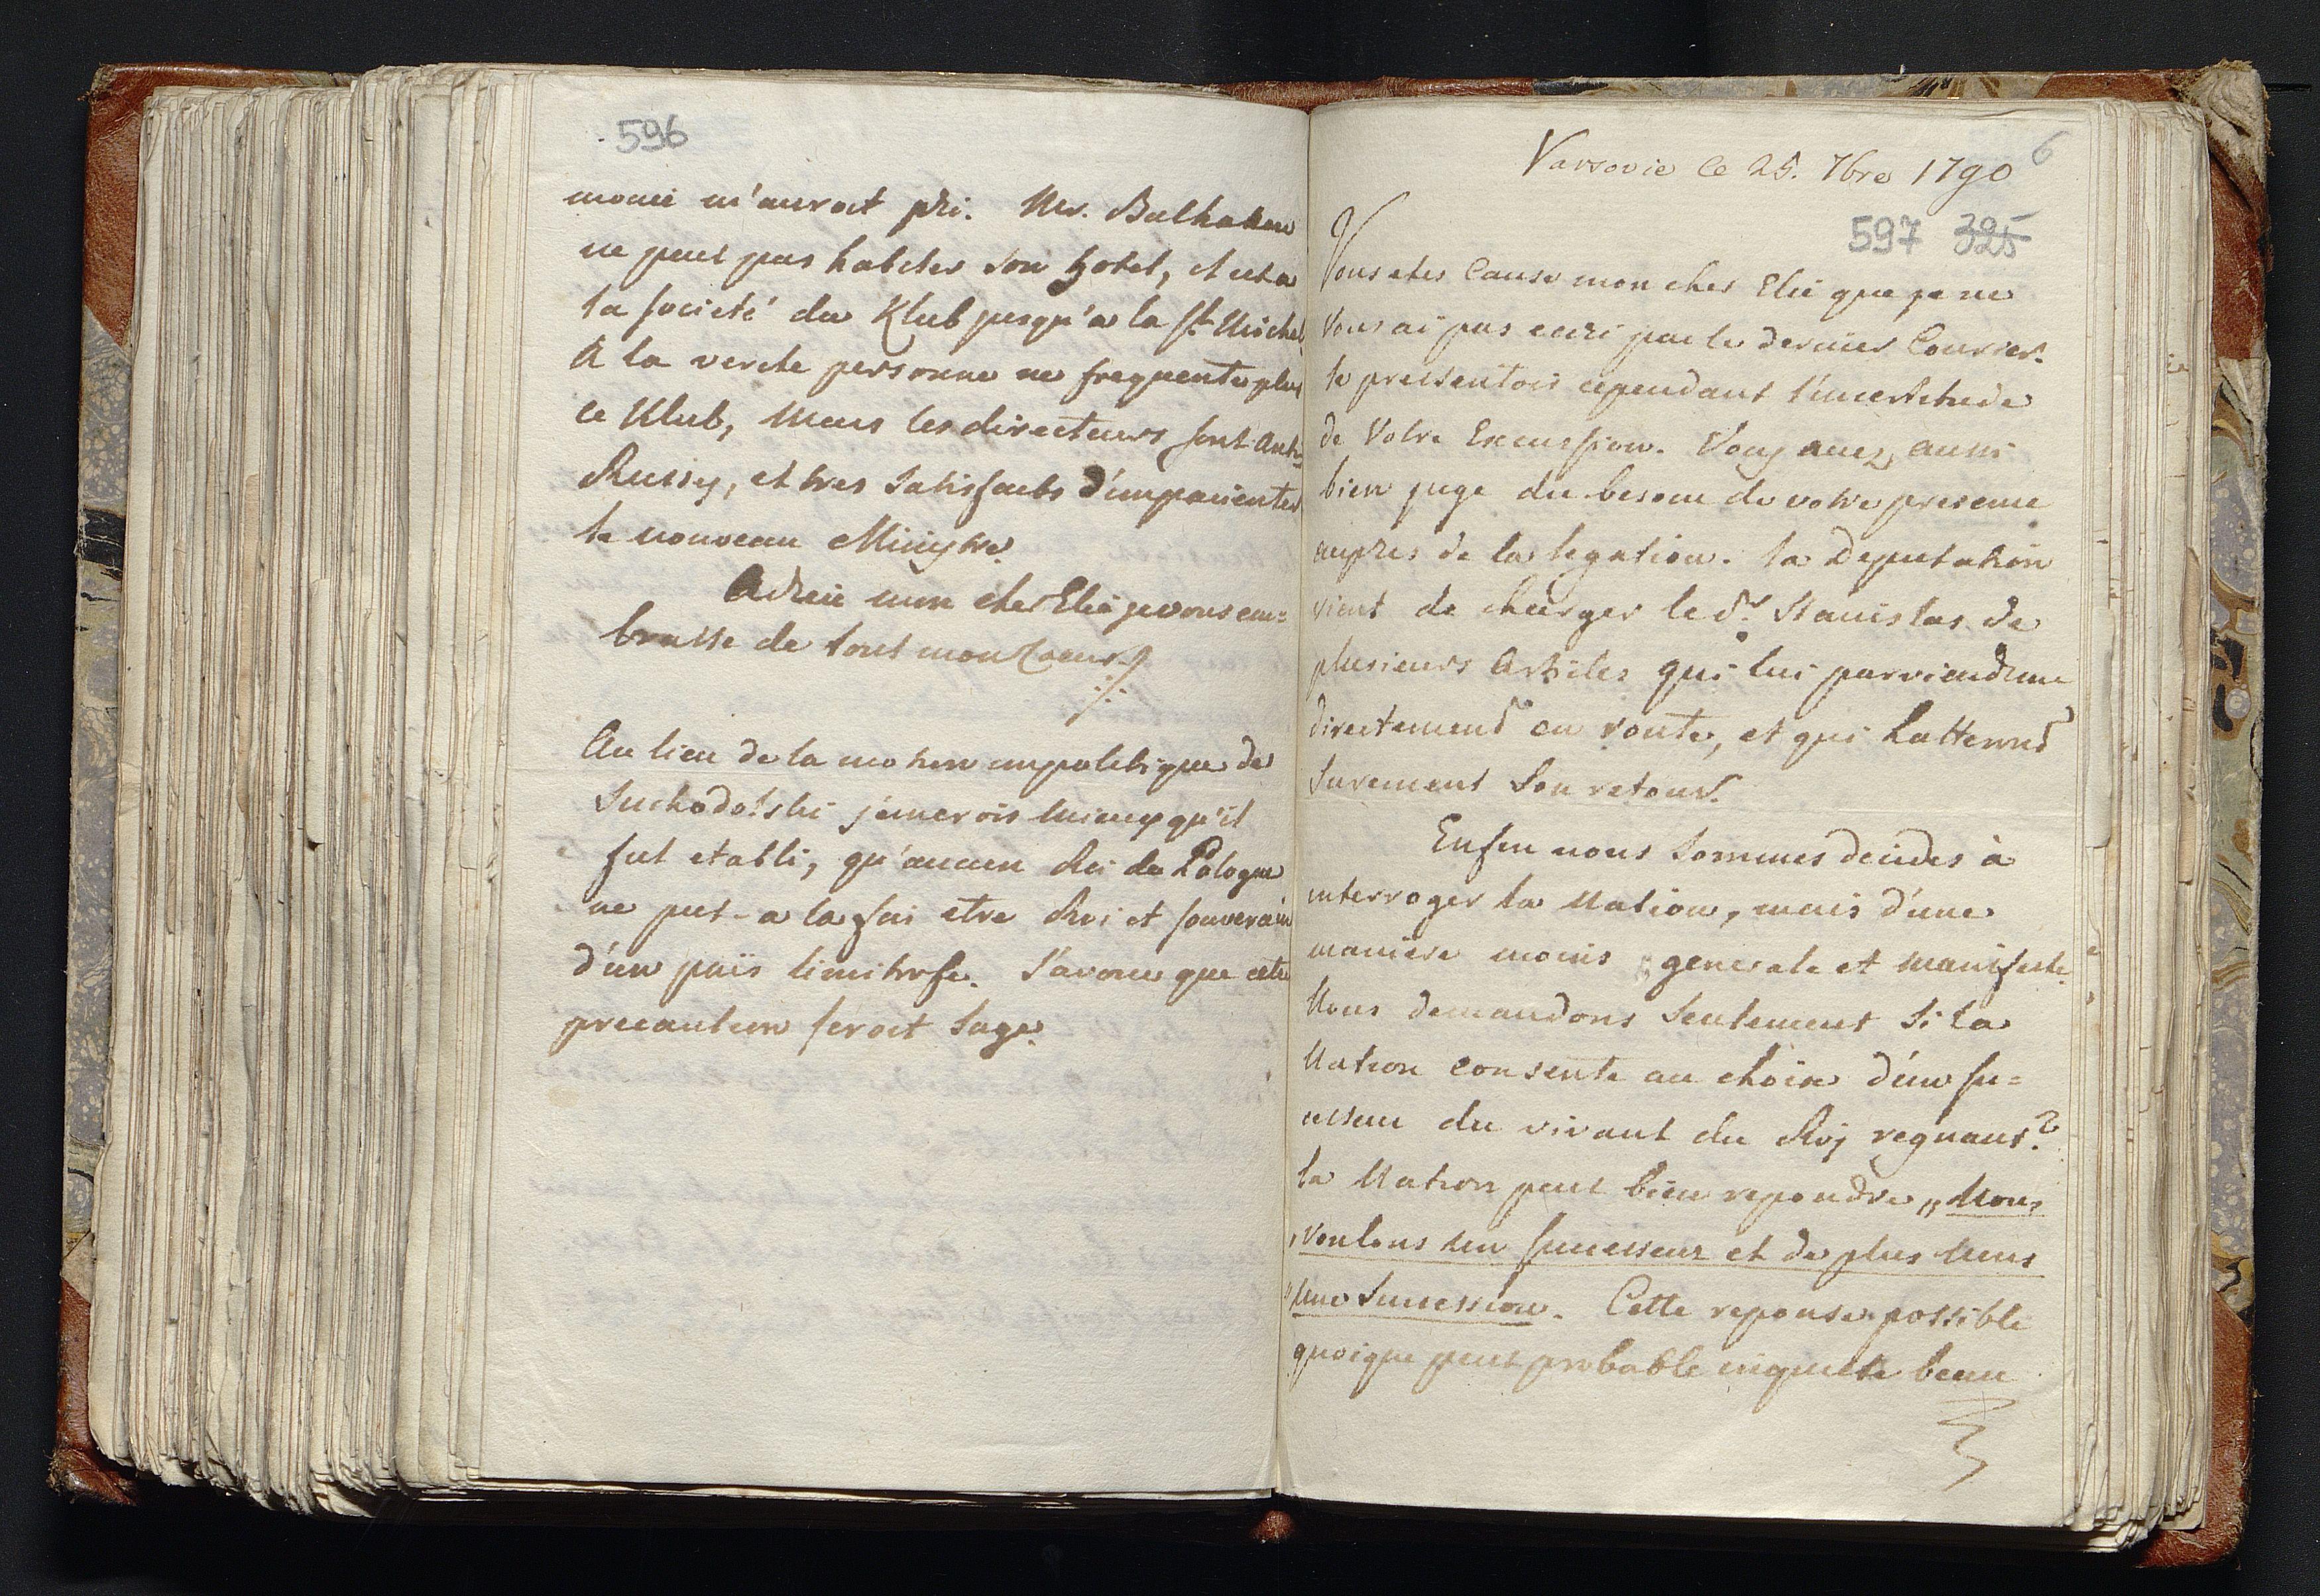 596
m'auroit pri. Mr. Bulhakow
ne peut pas habiter son hotel, il est a
la societé du Klub jusqu'a la St Michel
A la verite personne ne frequente plus
le Klub, Mais les directeurs sont Anti-
Russes, et tres satisfaits d'impatienter
le nouveau Ministre.
Adieu mon cher Elie je vous em=
brasse de tout mon Coeur ·/.
Au lieu de la motion impolitique de
Suchodolski j'aimerois mieux qu'il
fut etabli, qu'aucun Roi de Pologne
ne put-a la fois etre Roi et souverain
d'un païs limitrofe. J'avoue que cette
precaution seroit sage.
Varsovie le 25. 7bre 1790
6
597 325
Vous etes Cause mon cher Elie que je ne
Vous ai pas ecri par le dernier Courier.
Je pressentois cependant l'incertitude
de Votre Excursion. Vous avez aussi
bien juge du besoin de votre presence
aupres de la legation. La Deputation
vient de charger le Sr. Stanislas de
plusieurs Articles qui lui parviendront
directement en route, et qui hatteront
surement son retour.
Enfin nous sommes decides à
interroger la Nation, mais d'une
maniere moins generale et manifeste.
Nous demandons seulement si la
Nation consente au choix d'un su=
cesseur du vivant du Roj regnant?
la Nation peut bien repondre „Nous
„voulons un successeur et de plus
„une Succession. Cette reponse possible
quoique peut probable inquiete beau